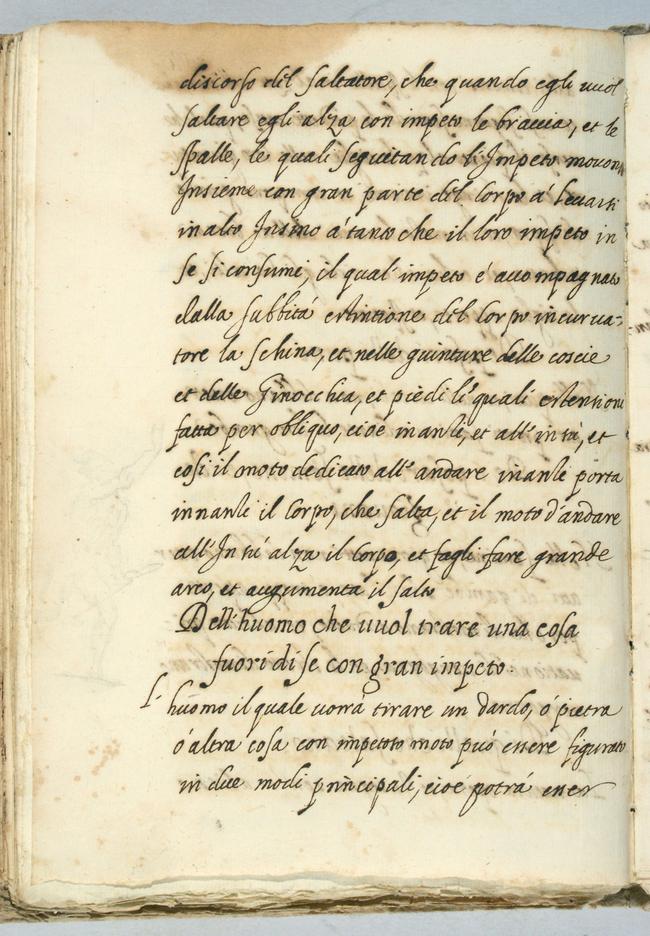 discorso del saltatore, che quando egli vuol
saltare egli alza con impeto le braccia, et le
spalle, le quali seguitando l'Impeto movon
Insieme con gran parte del Corpo á levarsi
in alto Insino á tanto che il loro impeto in
se si consumi, il qual' impeto é accompagnato
dalla subbitá estintione del Corpo incurva-
tore la schina, et nelle guinture delle coscie
et delle Ginocchia, et piedi li quali estensione
fatta per obliquo, cioé inanti, et all' in sú, et
cosi il moto dedicato all' andare inante porta
innanti il Corpo, che salta, et il moto d'andare
all' In sú alza il Corpo, et fagli fare grande
arco, et augumenta il salto
Dell' huomo che vuol trare una cosa
fuori di se con gran impeto.
L' huomo il quale vorrá tirare un dardo, ó pietra
ó altra cosa con impetoto moto puó essere figurato
in due modi principali, cioé potrá esser